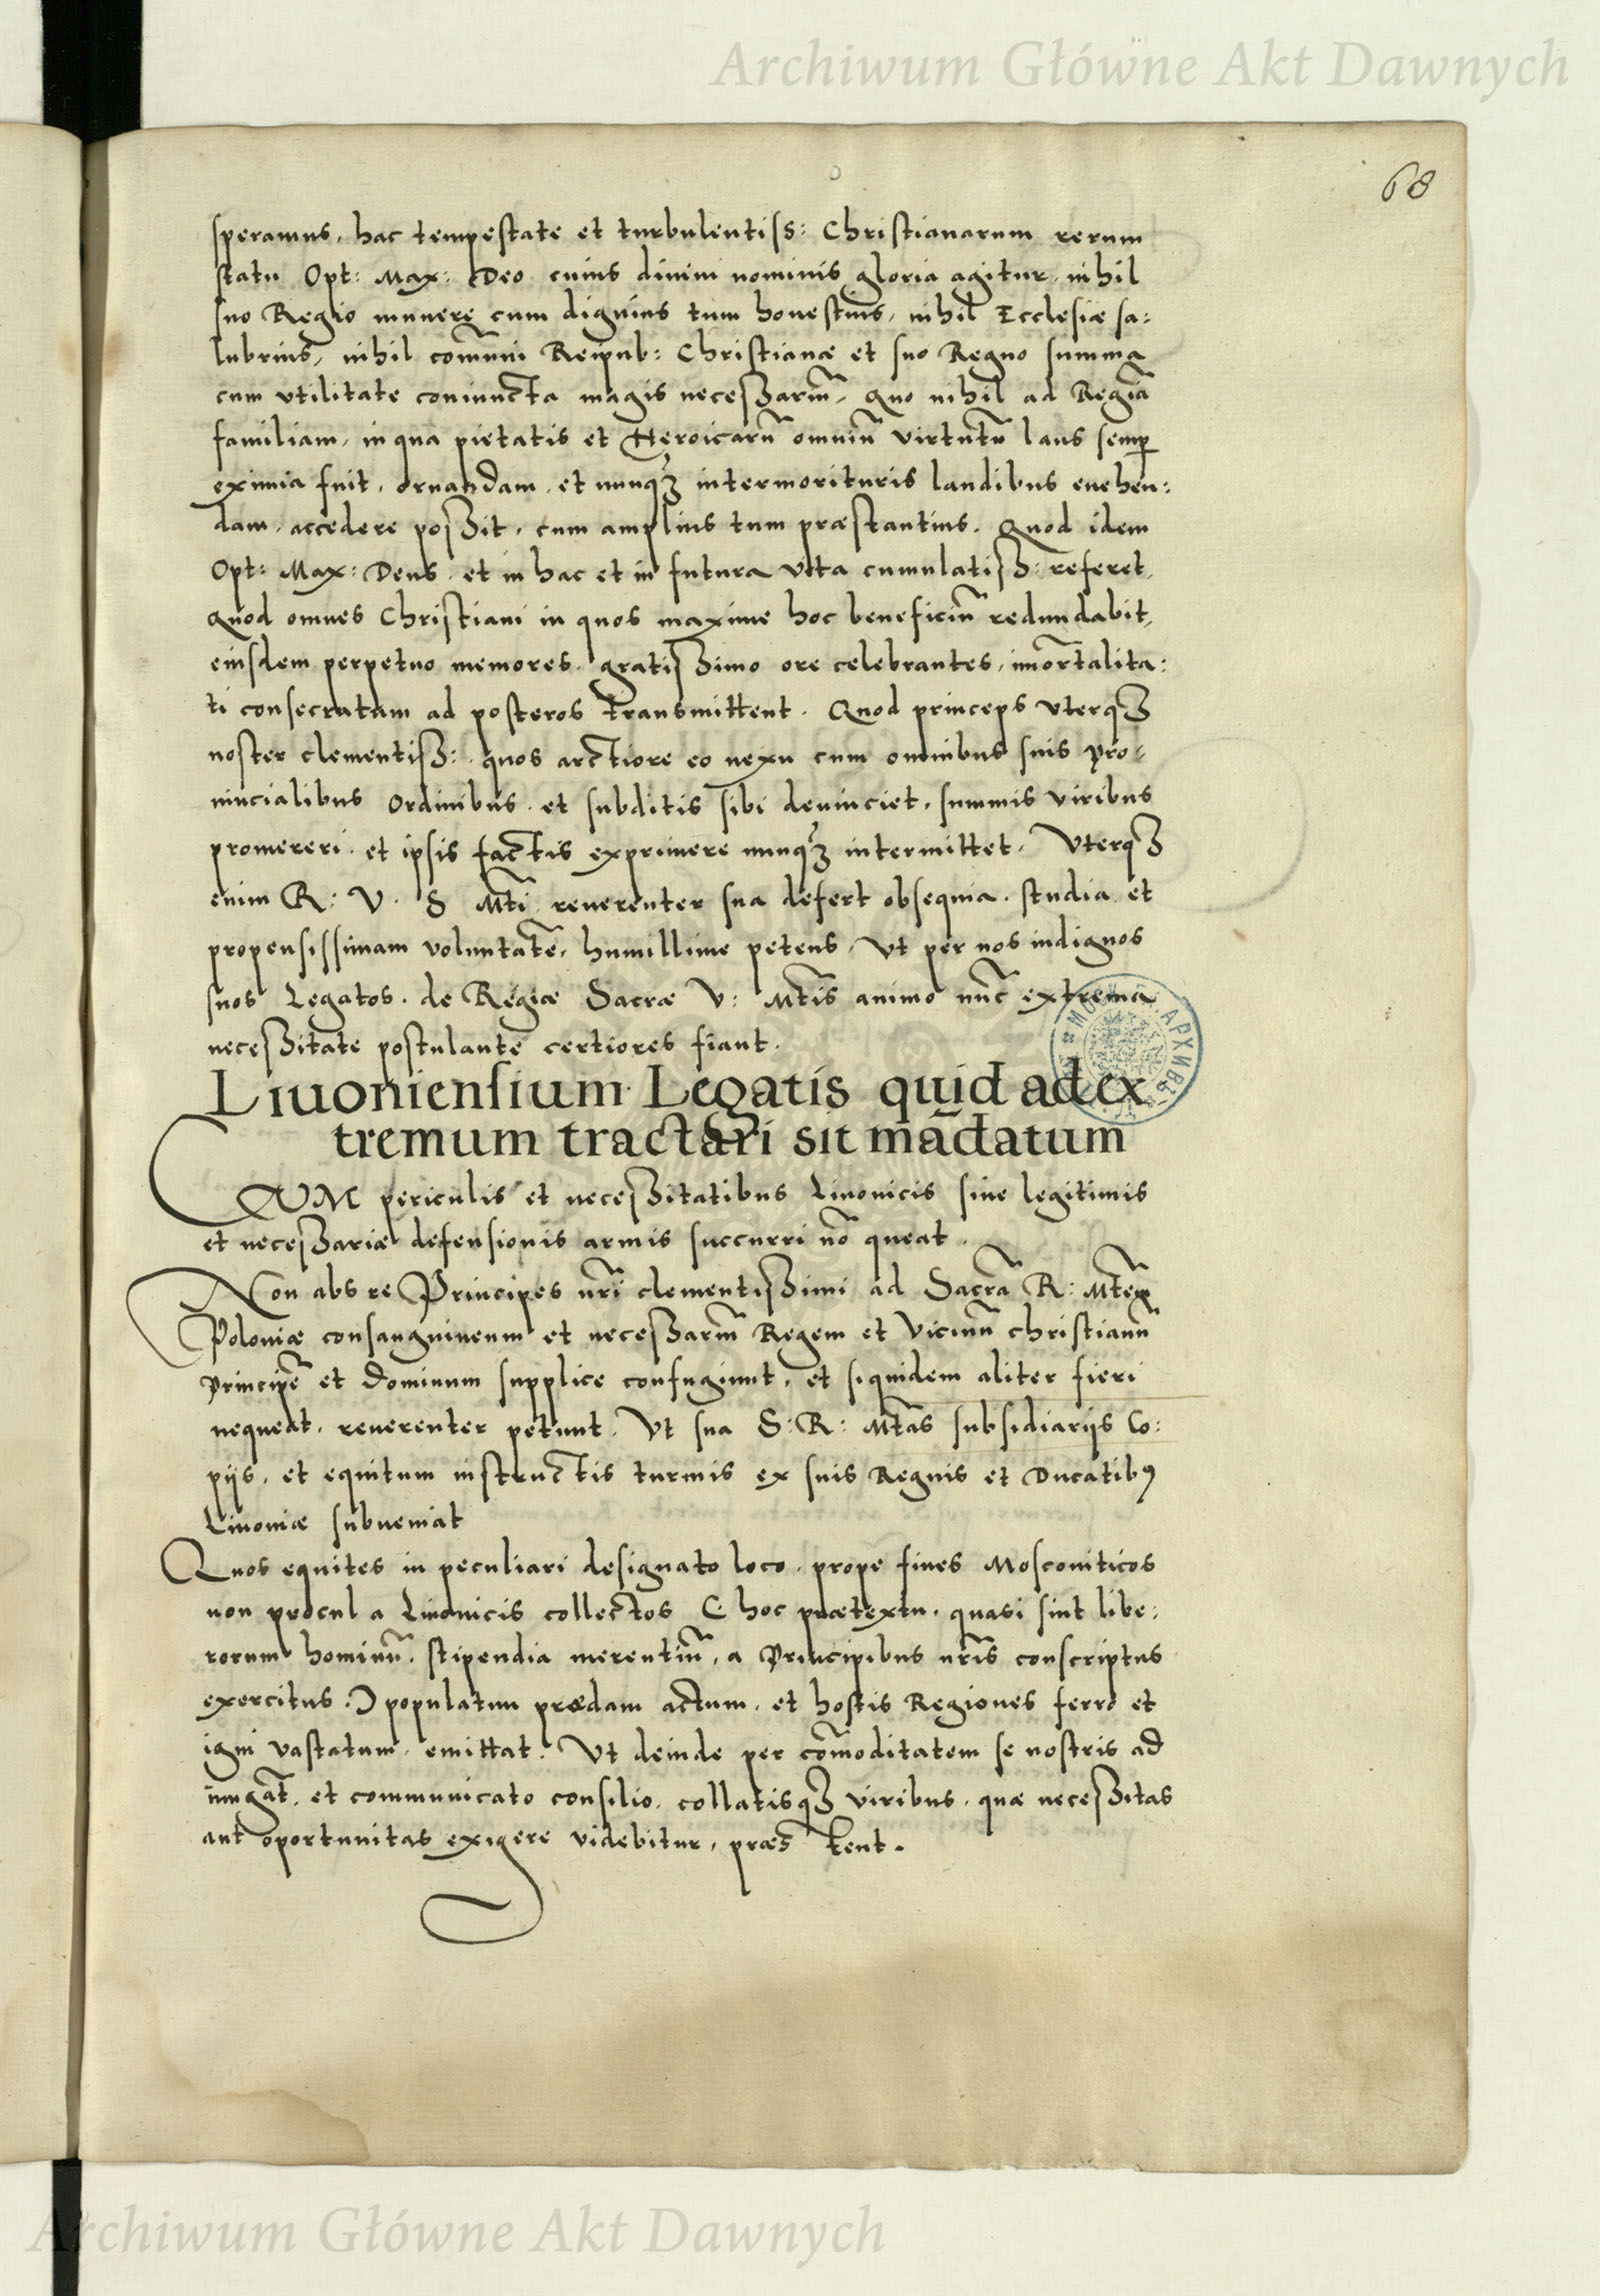 Archiwum Główne Akt Dawnych
68
speramus, hac tempestate et turbulentiss: Christianarum rerum
statu Opt: Max: Deo cuius divini nominis gloria agitur, nihil
suo Regio munere cum dignius tum honestius, nihil Ecclesiæ sa:
lubrius, nihil com̄uni Reipub: Christianæ et suo Regno summa
cum vtilitate coniuncta magis necessariū, Quo nihil ad Regiā
familiam, in qua pietatis et Heroicarū omniū virtutū laus semꝑ
eximia fuit, ornandam, et nunqꝫ intermorituris laudibus euehen:
dam, accedere possit, cum amplius tum præstantius. Quod idem
Opt: Max: Deus, et in hac et in futura vita cumulatiss: referet,
Quod omnes Christiani in quos maxime hoc beneficiū redundabit,
eiusdem perpetuo memores, gratissimo ore celebrantes, im̄ortalita:
ti consecratam ad posteros transmittent. Quod princeps vterqꝫ
noster clementiss: quos arctiore eo nexu cum omnibus suis Pro:
uincialibus Ordinibus, et subditis sibi deuinciet, summis viribus
promereri, et ipsis factis exprimere nunqꝫ intermittet. Vterqꝫ
enim R: V. S Mti reuerenter sua defert obsequia, studia et
propensissimam voluntatē, humillime petens, Vt per nos indignos
suos Legatos, de Regiæ Sacræ V: Mtis animo nūc extrema
necessitate postulante certiores fiant.
Liuoniensium Legatis quid ad ex
tremum tractari sit mādatum
CVM periculis et necessitatibus Liuonicis sine legitimis
et necessariæ defensionis armis succurri nō queat.
Non abs re Principes nr̄i clementissimi ad Sacrā R: Mtem
Poloniæ consanguineum et necessariū Regem et Vicinū christianū
Principē et Dominum supplice confugiunt, et siquidem aliter fieri
nequeat, reuerenter petunt. Vt sua S: R: Mtas subsidiarijs Co:
pijs, et equitum instructis turmis ex suis Regnis et Ducatibꝰ
Liuoniæ subueniat
Quos equites in peculiari designato loco, prope fines Mosconiticos
non procul a Liuonicis collectos C hoc prætextu, quasi sint libe:
rorum hominū, stipendia merentiū, a Principibus nr̄is conscriptus
exercitus Ɔ populatum prædam actum, et hostis Regiones ferro et
igni vastatum, emittat. Vt deinde per com̄oditatem se nostris ad
iungāt, et communicato consilio, collatisqꝫ viribus, quæ necessitas
aut oportunitas exigere videbitur, præstent.
Archiwum Główne Akt Dawnych